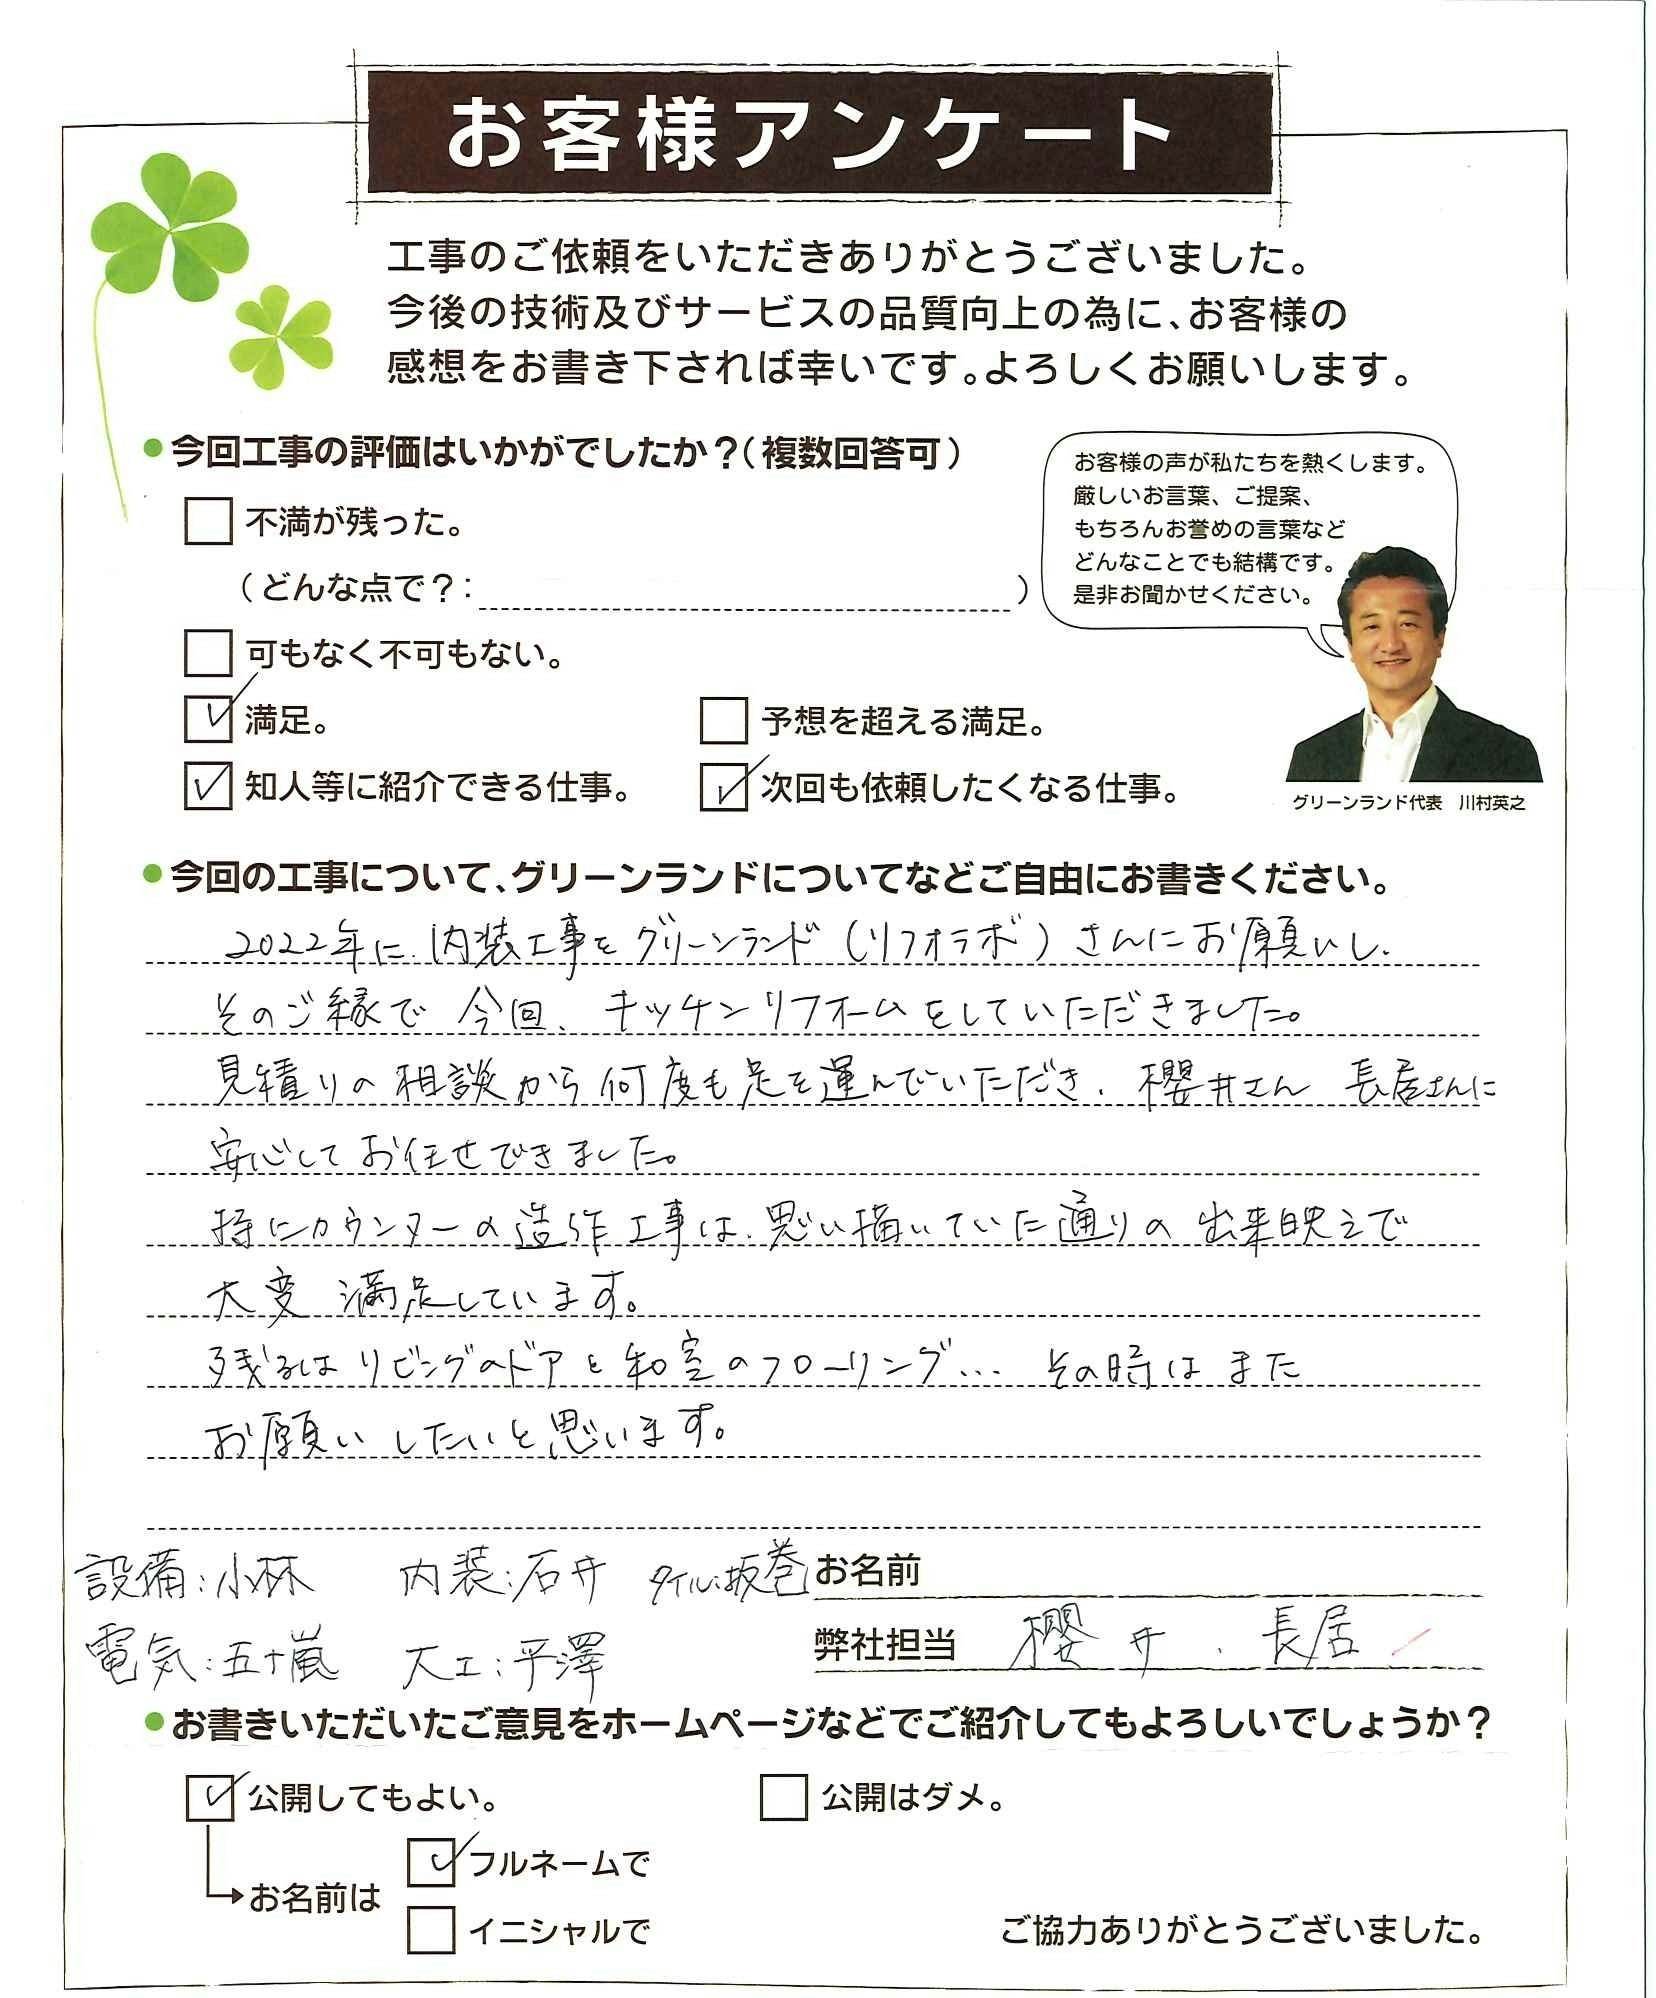 お客様アンケート
工事のご依頼をいただきありがとうございました。
今後の技術及びサービスの品質向上の為に、お客様の
感想をお書き下されば幸いです。よろしくお願いします。
●今回工事の評価はいかがでしたか？（複数回答可）
不満が残った。
（どんな点で？：　）
可もなく不可もない。
満足。
予想を超える満足。
知人等に紹介できる仕事。
次回も依頼したくなる仕事。
お客様の声が私たちを熱くします。
厳しいお言葉、ご提案、
もちろんお誉めの言葉など
どんなことでも結構です。
是非お聞かせください。
グリーンランド代表　川村英之
●今回の工事について、グリーンランドについてなどご自由にお書きください。
2022年に、内装工事をグリーンランド（リフォラボ）さんにお願いし、
そのご縁で 今回、キッチンリフォームをしていただきました。
見積りの相談から何度も足を運んでいただき、櫻井さん 長居さんに
安心してお任せできました。
特にカウンターの造作工事は、思い描いていた通りの出来映えで
大変 満足しています。
残るはリビングのドアと和室のフローリング… その時はまた
お願いしたいと思います。
設備：小林　内装：石井　タイル：坂巻
電気：五十嵐　大工：平澤
お名前
弊社担当　櫻井、長居
●お書きいただいたご意見をホームページなどでご紹介してもよろしいでしょうか？
公開してもよい。
公開はダメ。
お名前は
フルネームで
イニシャルで
ご協力ありがとうございました。